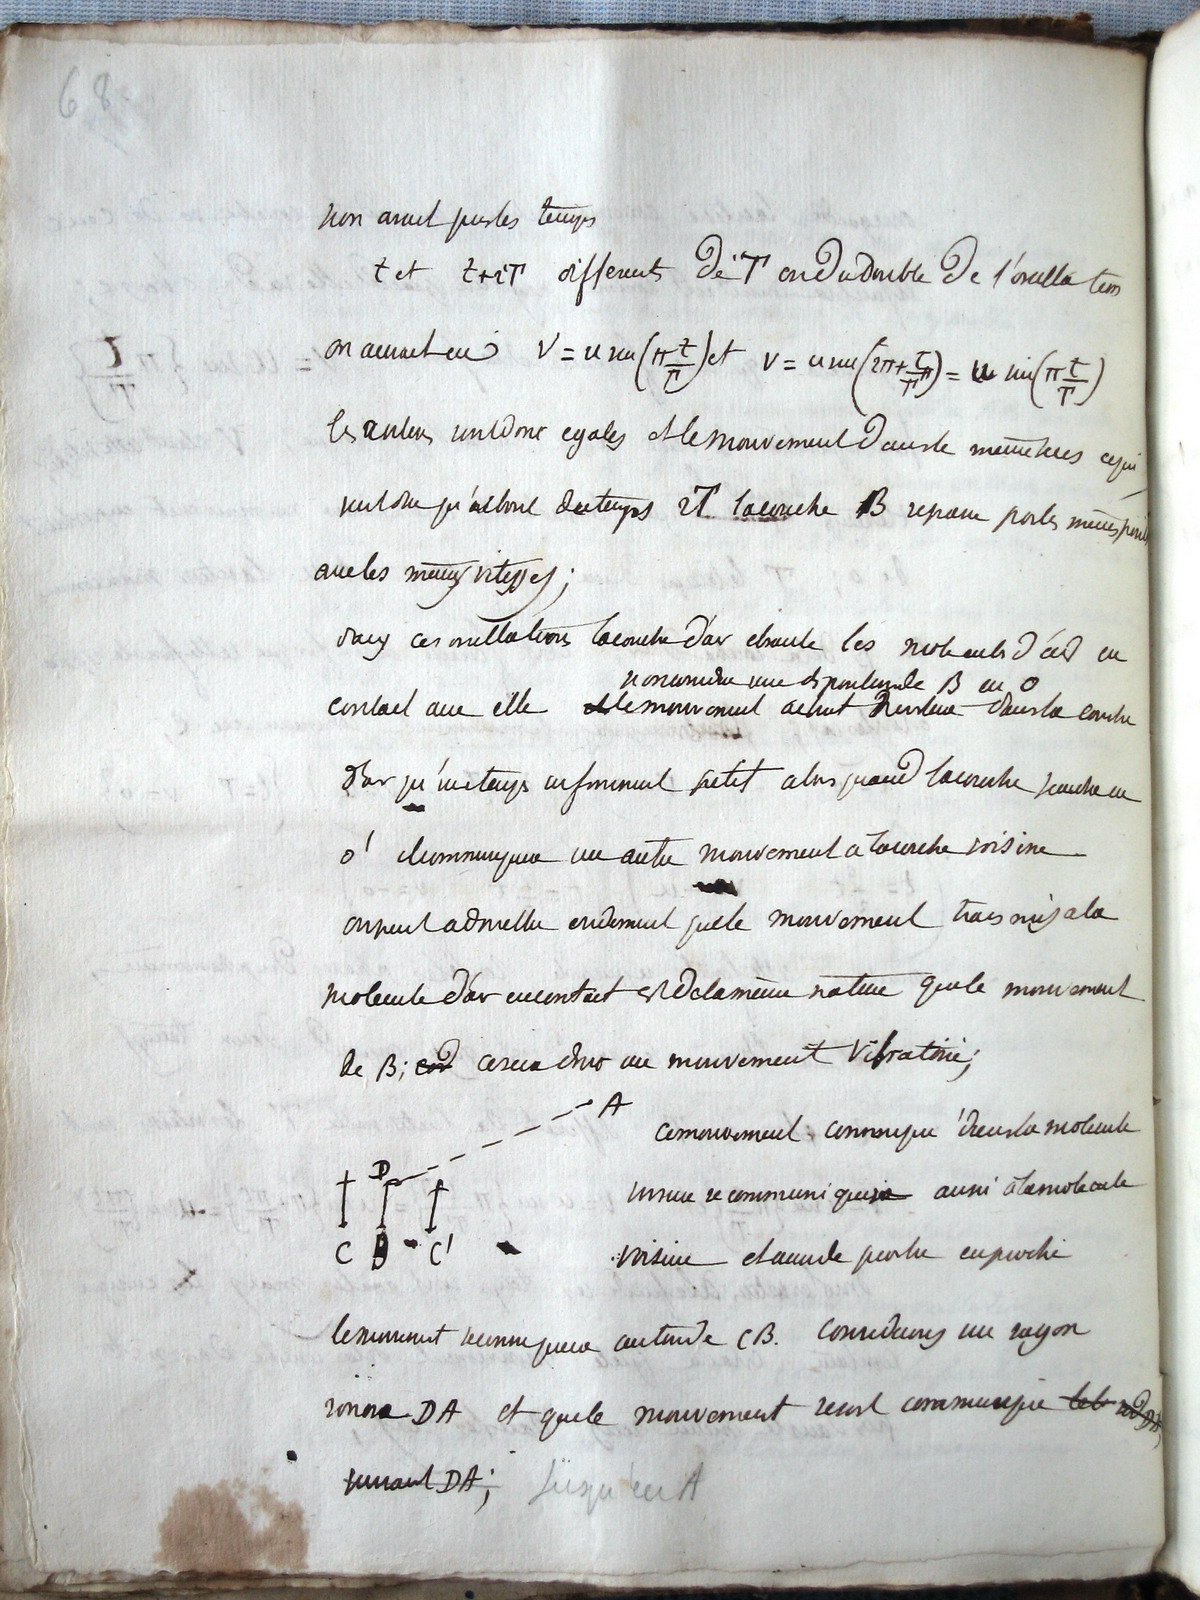 68
t et t+2T différents de 2T ou du double de l'oscillation
on aurait eu V = u sin(π t/T) et V = u sin(2π + t/T π) = u sin(π t/T)
les valeurs sont donc egales et le mouvement dans le meme sens ce qui
veut dire qu'au bout du temps 2T la couche B repasse par les memes points
avec les memes vitesses;
dans ces oscillations la couche d'air ebranle les molecules d'air en
B en O
contact avec elle le mouvement dans la couche
d'air qu'un temps infiniment petit alors quand la couche en
o' communiquera un autre mouvement a la couche voisine
on peut admettre evidement que le mouvement transmis a la
molecule d'air en contact est de la même nature que le mouvement
de B; ce sera donc un mouvement vibratoire;
A
ce mouvement communiqué dans la molecule
D
se communiquera aussi à la molecule
C B C'
voisine et ainsi de proche en proche
le mouvement se communiquera autour de CB. Considerons un rayon
sonore DA et que le mouvement se soit communiqué
suivant DA; jusqu'en A